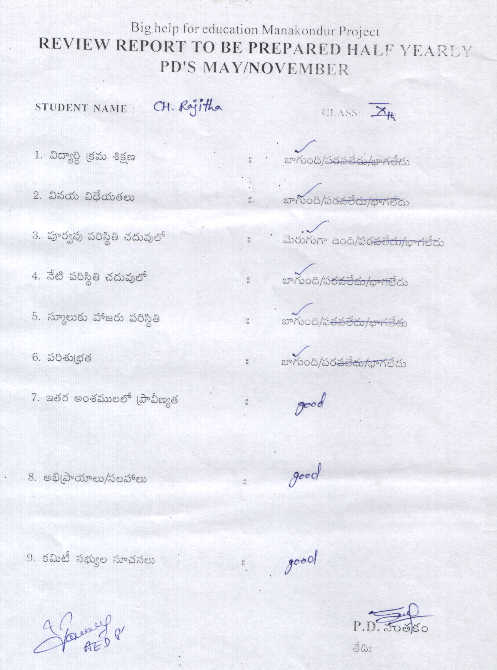 Big help for education Manakondur Project
REVIEW REPORT TO BE PREPARED HALF YEARLY
PD'S MAY/NOVEMBER
STUDENT NAME : CH. Rajitha CLASS Xth
1. విద్యార్థి క్రమ శిక్షణ : బాగుంది/పరవలేదు/బాగలేదు
2. వినయ విధేయతలు : బాగుంది/పరవలేదు/బాగలేదు
3. పూర్వపు పరిస్థితి చదువులో : మెరుగుగా ఉంది/పరవలేదు/బాగలేదు
4. నేటి పరిస్థితి చదువులో : బాగుంది/పరవలేదు/బాగలేదు
5. స్కూలుకు హాజరు పరిస్థితి : బాగుంది/పరవలేదు/బాగలేదు
6. పరిశుభ్రత : బాగుంది/పరవలేదు/బాగలేదు
7. ఇతర అంశములలో ప్రావీణ్యత : good
8. అభిప్రాయాలు/సలహాలు : good
9. కమిటీ సభ్యుల సూచనలు : good
P.D. సంతకం
తేది: